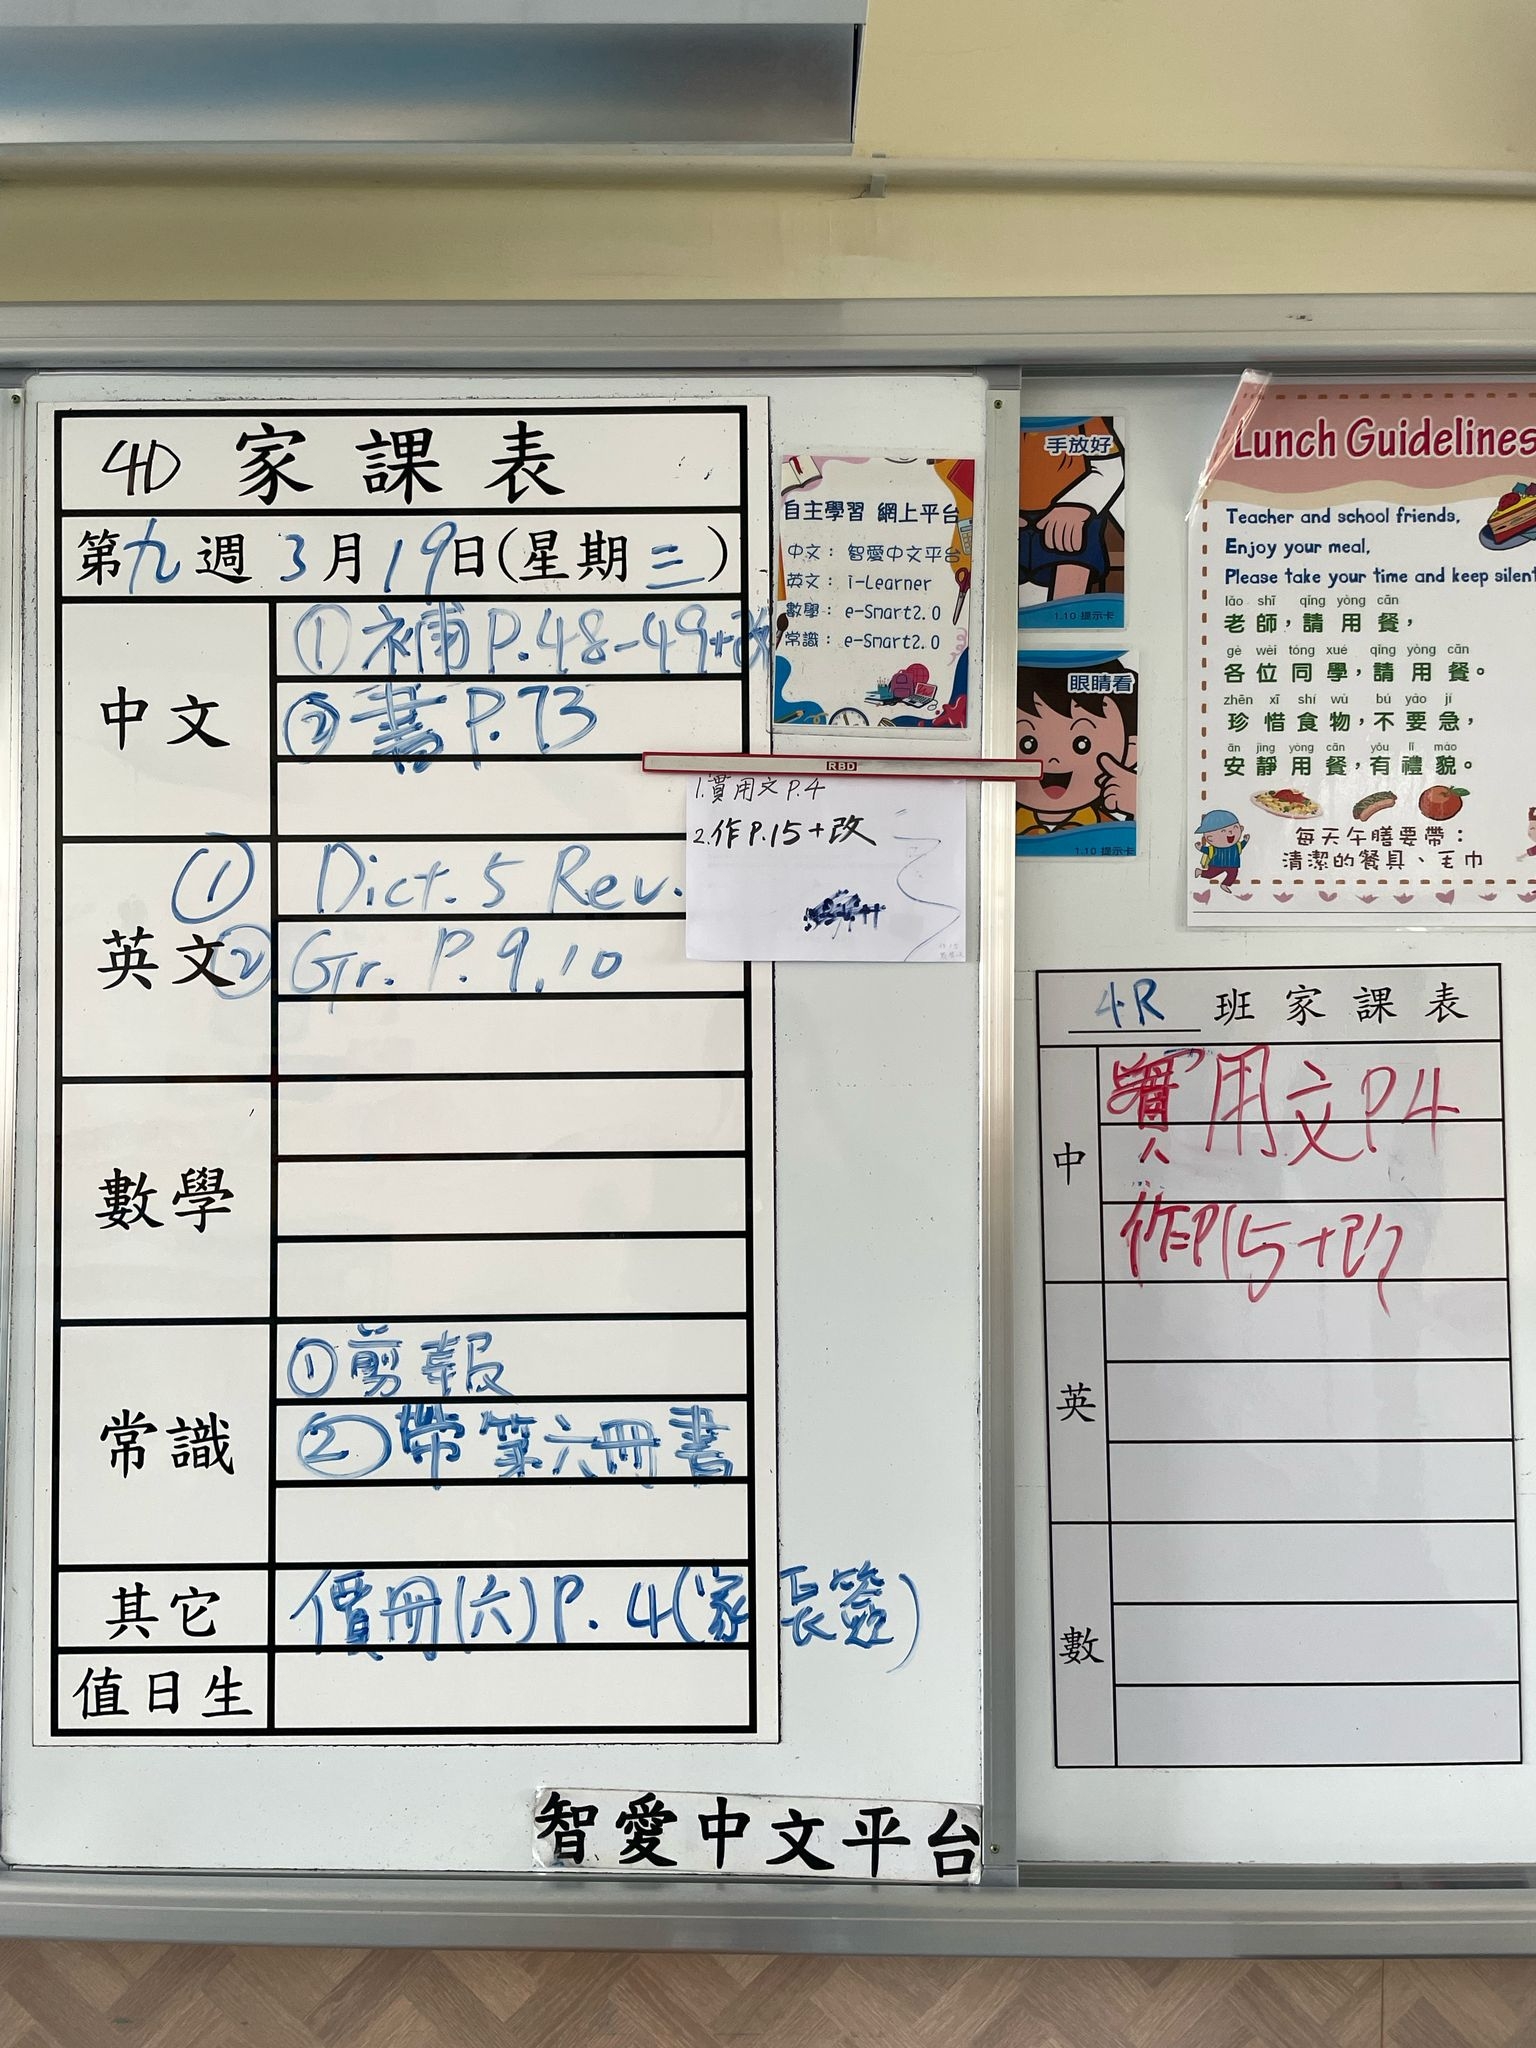 4D 家課表
第九週 3月19日(星期三)
中文
①補P.48-49+改
②書P.73
英文
① Dict. 5 Rev.
② Gr. P. 9, 10
數學
常識
①剪報
②帶第六冊書
其它
價冊(六)P. 4(家長簽)
值日生
智愛中文平台
自主學習 網上平台
中文： 智愛中文平台
英文： i-Learner
數學： e-Smart2.0
常識： e-Smart2.0
RBD
1.實用文P.4
2.作P.15+改
手放好
1.10 提示卡
眼睛看
1.10 提示卡
Lunch Guidelines
Teacher and school friends,
Enjoy your meal,
Please take your time and keep silent
lǎo shī qǐng yòng cān
老師，請用餐，
gè wèi tóng xué qǐng yòng cān
各位同學，請用餐。
zhēn xī shí wù bú yào jí
珍惜食物，不要急，
ān jìng yòng cān yǒu lǐ mào
安靜用餐，有禮貌。
每天午膳要帶：
清潔的餐具、毛巾
4R 班家課表
中
實用文P4
作P15+改
英
數